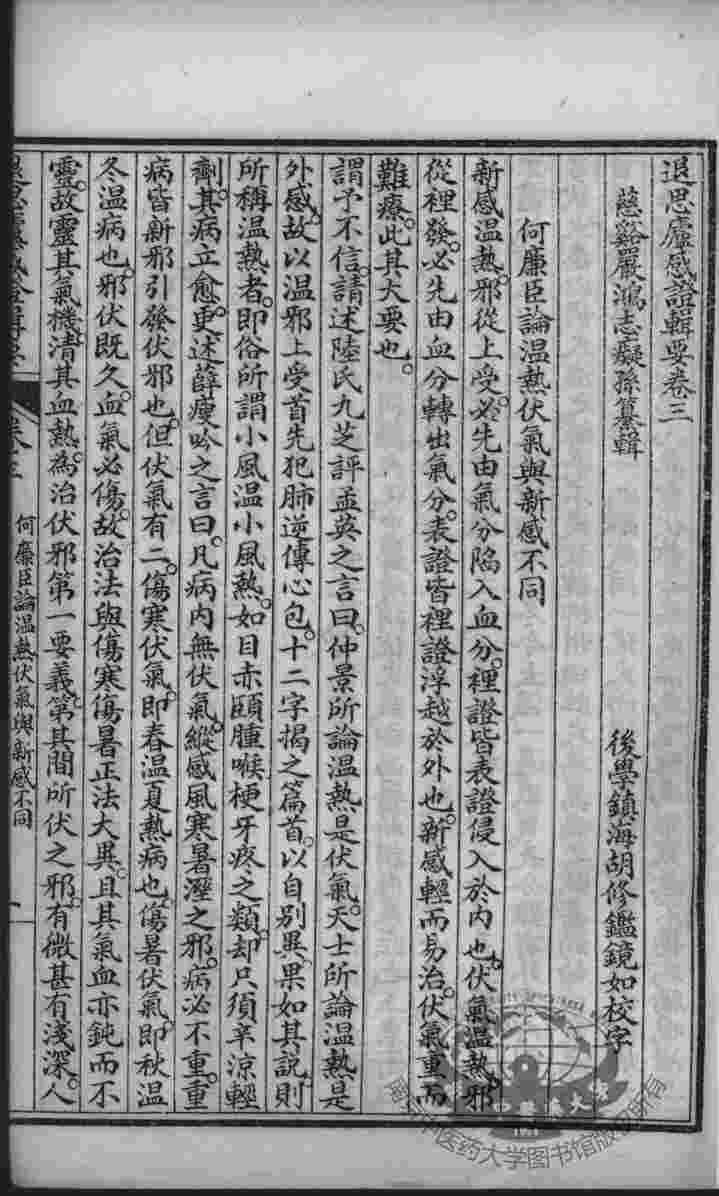 退思廬感證輯要卷三
慈谿嚴鴻志癡孫纂輯
後學鎮海胡修鑑鏡如校字
何廉臣論溫熱伏氣與新感不同
新感溫熱。邪從上受。必先由氣分陷入血分。裡證皆表證侵入於內也。伏氣溫熱。邪
從裡發。必先由血分轉出氣分。表證皆裡證浮越於外也。新感輕而易治。伏氣重而
難療。此其大要也。
謂予不信。請述陸氏九芝評孟英之言曰。仲景所論溫熱是伏氣。天士所論溫熱是
外感。故以溫邪上受首先犯肺逆傳心包。十二字揭之篇首。以自別異。果如其說。則
所稱溫熱者。即俗所謂小風溫小風熱。如目赤頤腫喉梗牙疼之類。却只須辛涼輕
劑。其病立愈。更述薛瘦吟之言曰。凡病內無伏氣。縱感風寒暑溼之邪。病必不重。重
病皆新邪引發伏邪也。但伏氣有二。傷寒伏氣。即春溫夏熱病也。傷暑伏氣。即秋溫
冬溫病也。邪伏既久。血氣必傷。故治法與傷寒傷暑正法大異。且其氣血亦鈍而不
靈。故靈其氣機。清其血熱。為治伏邪第一要義。第其間所伏之邪。有微甚有淺深。人
卷三
何廉臣論溫熱伏氣與新感不同
中医药大学图书馆版权所有